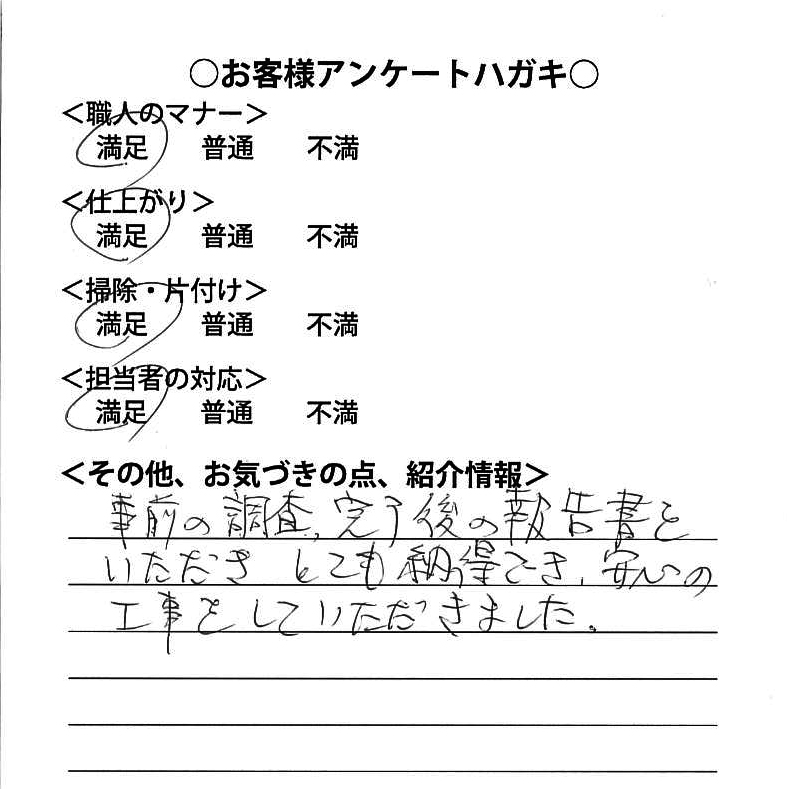 ○お客様アンケートハガキ○
＜職人のマナー＞
満足 普通 不満
＜仕上がり＞
満足 普通 不満
＜掃除・片付け＞
満足 普通 不満
＜担当者の対応＞
満足 普通 不満
＜その他、お気づきの点、紹介情報＞
事前の調査、完了後の報告書を
いただき とても納得でき、安心の
工事をしていただきました。